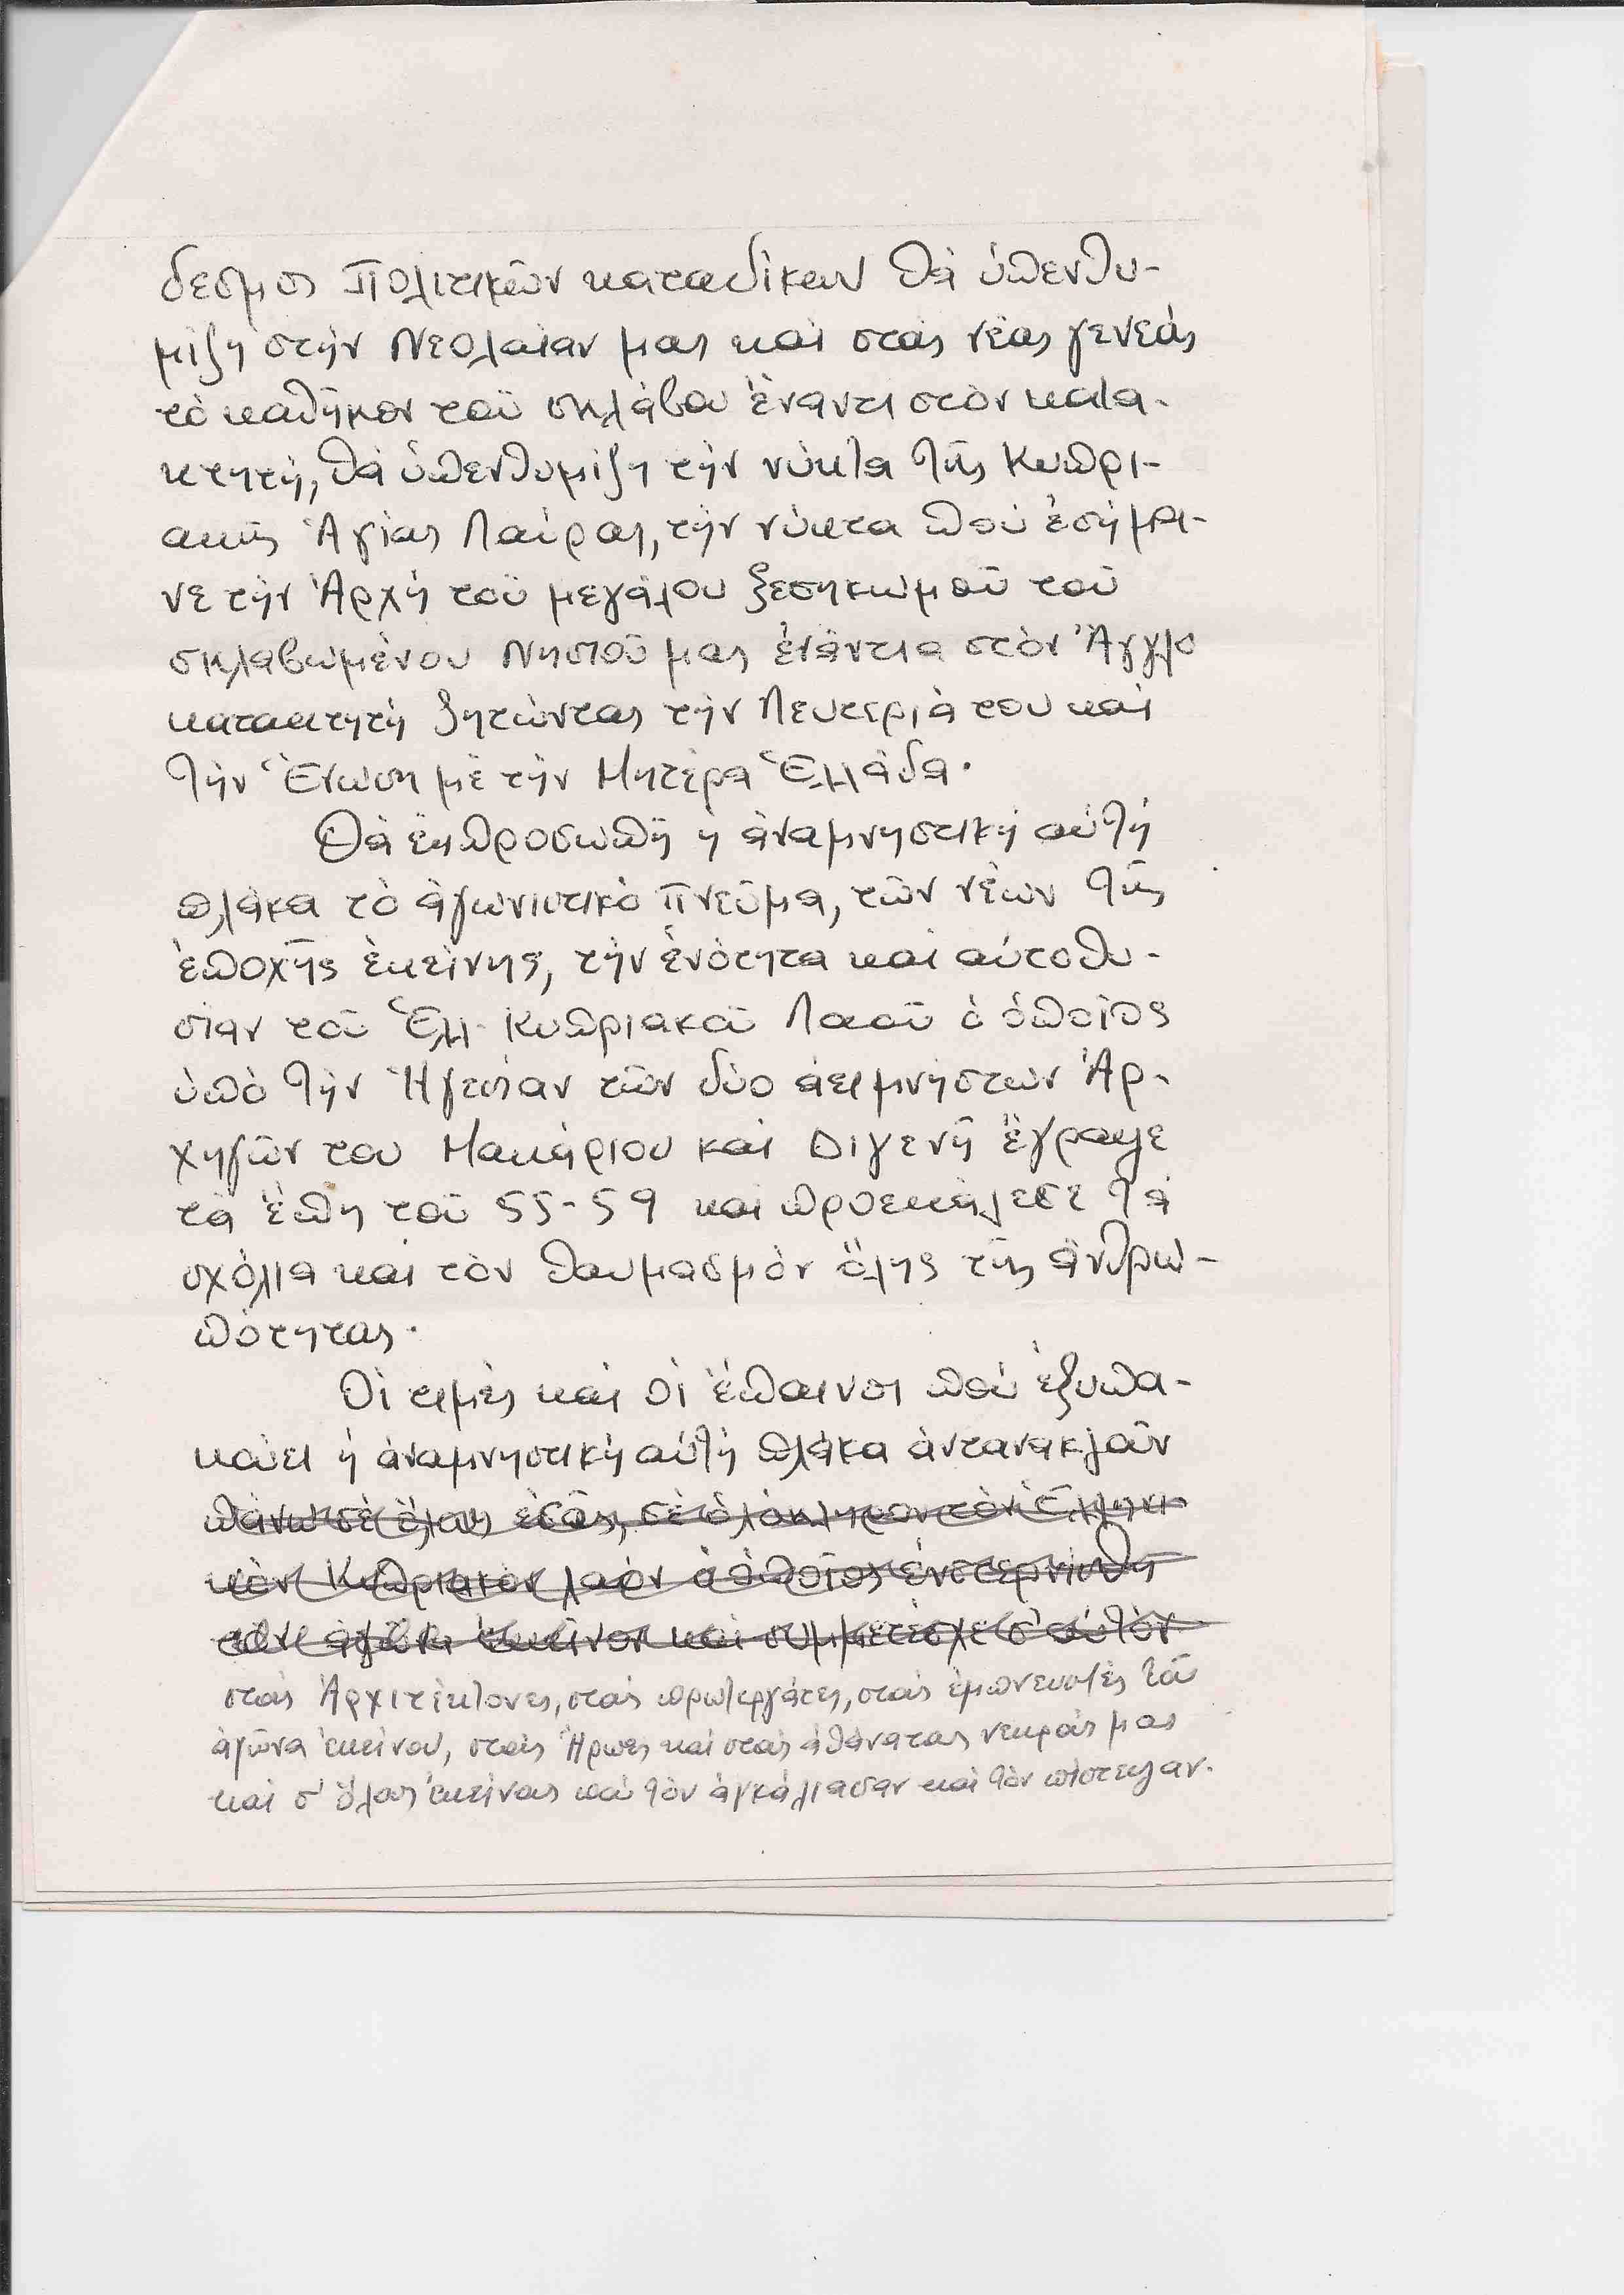 δεσμος Πολιτικῶν καταδίκων θά ὑπενθυ-
μίζη στήν Νεολαίαν μας καί στάς νέας γενεάς
τό καθῆκον τοῦ σκλάβου ἔναντι στόν κατα-
κτητή, θά ὑπενθυμίζη τήν νύκτα τῆς Κυπρι-
ακῆς Ἁγίας Λαύρας, τήν νύκτα πού ἐσήμαι-
νε τήν Ἀρχή τοῦ μεγάλου ξεσηκωμοῦ τοῦ
σκλαβωμένου Νησιοῦ μας ἐνάντια στόν Ἄγγλο
κατακτητή ζητώντας τήν Λευτεριά του καί
τήν Ἕνωση μέ τήν Μητέρα Ἑλλάδα.
Θά ἐκπροσωπῆ ἡ ἀναμνηστική αὐτή
πλάκα τό ἀγωνιστικό Πνεῦμα, τῶν νέων τῆς
ἐποχῆς ἐκείνης, τήν ἑνότητα καί αὐτοθυ-
σίαν τοῦ Ἑλλ. Κυπριακοῦ Λαοῦ ὁ ὁποῖος
ὑπό τήν Ἡγεσίαν τῶν δύο ἀειμνήστων Ἀρ-
χηγῶν του Μακάριου καί Διγενῆ ἔγραψε
τά ἔπη τοῦ 55-59 καί προεκάλεσε τά
σχόλια καί τόν θαυμασμόν ὅλης τῆς ἀνθρω-
πότητας.
Οἱ τιμές καί οἱ ἔπαινοι πού ἐξυπα-
κούει ἡ ἀναμνηστική αὐτή πλάκα ἀντανακλοῦν
πάνω σέ ὅλους ἐσᾶς, σέ ὁλόκληρον τόν Ἑλληνι-
κόν Κυπριακόν λαόν ὁ ὁποῖος ἐνστερνίσθη
τόν ἀγῶνα ἐκεῖνον καί συμμετέσχε σ' αὐτόν
στούς Ἀρχιτέκτονες, στούς πρωτεργάτες, στούς ἐμπνευστές τοῦ
ἀγῶνα ἐκείνου, στούς Ἥρωες καί στούς ἀθάνατους νεκρούς μας
καί σ' ὅλους ἐκείνους πού τόν ἀγκάλιασαν καί τόν πίστεψαν.